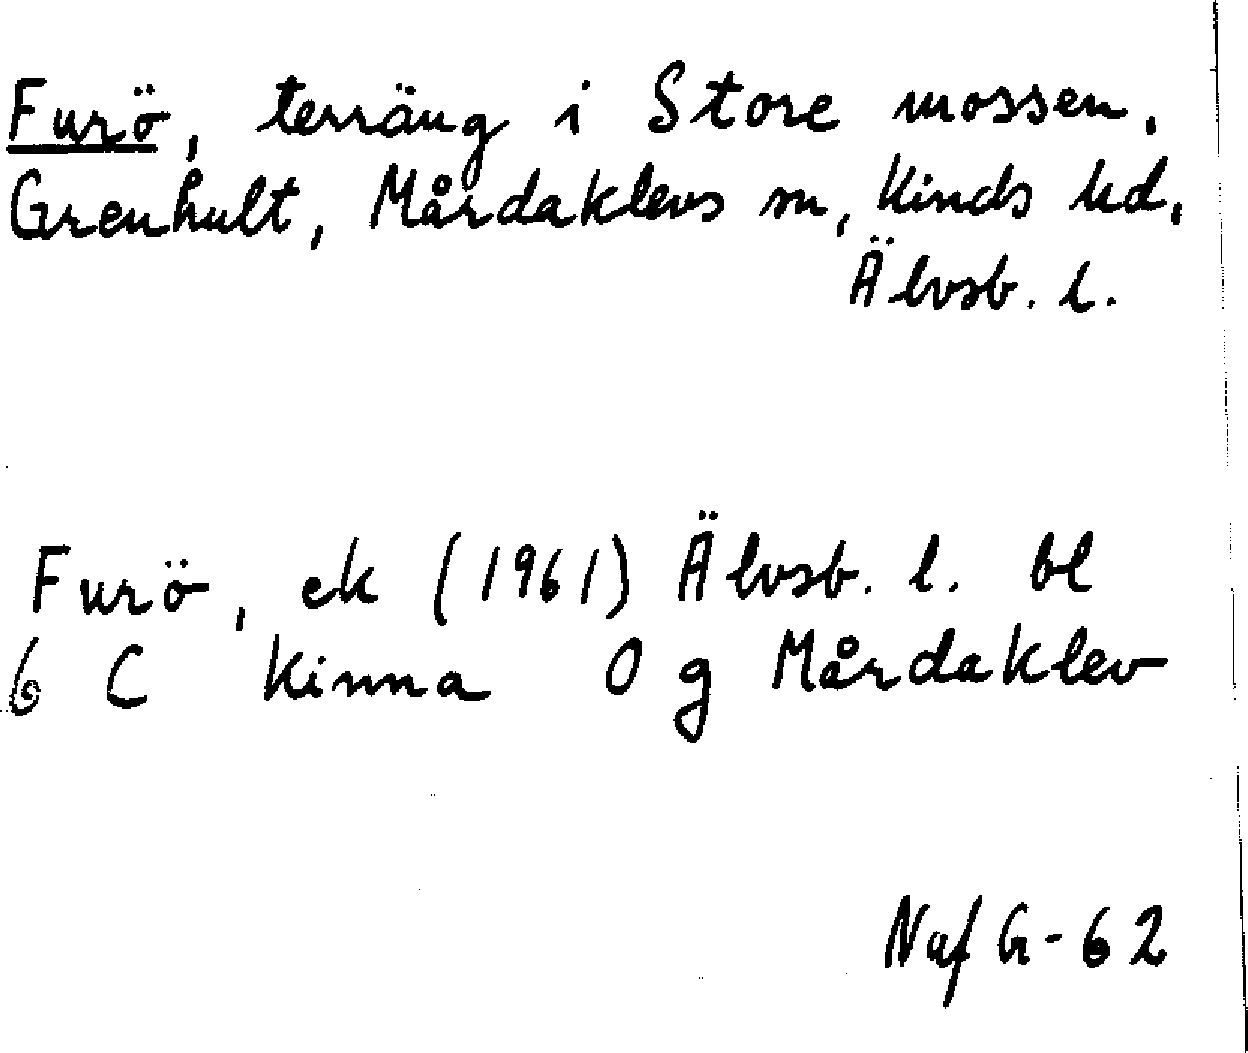 Furö, terräng i Store mossen,
Grenhult, Mårdaklevs sn, Kinds hd,
Älvsb. l.
Furö, ek (1961) Älvsb. l. bl
6 C Kinna 0 g Mårdaklev
Naf G-62